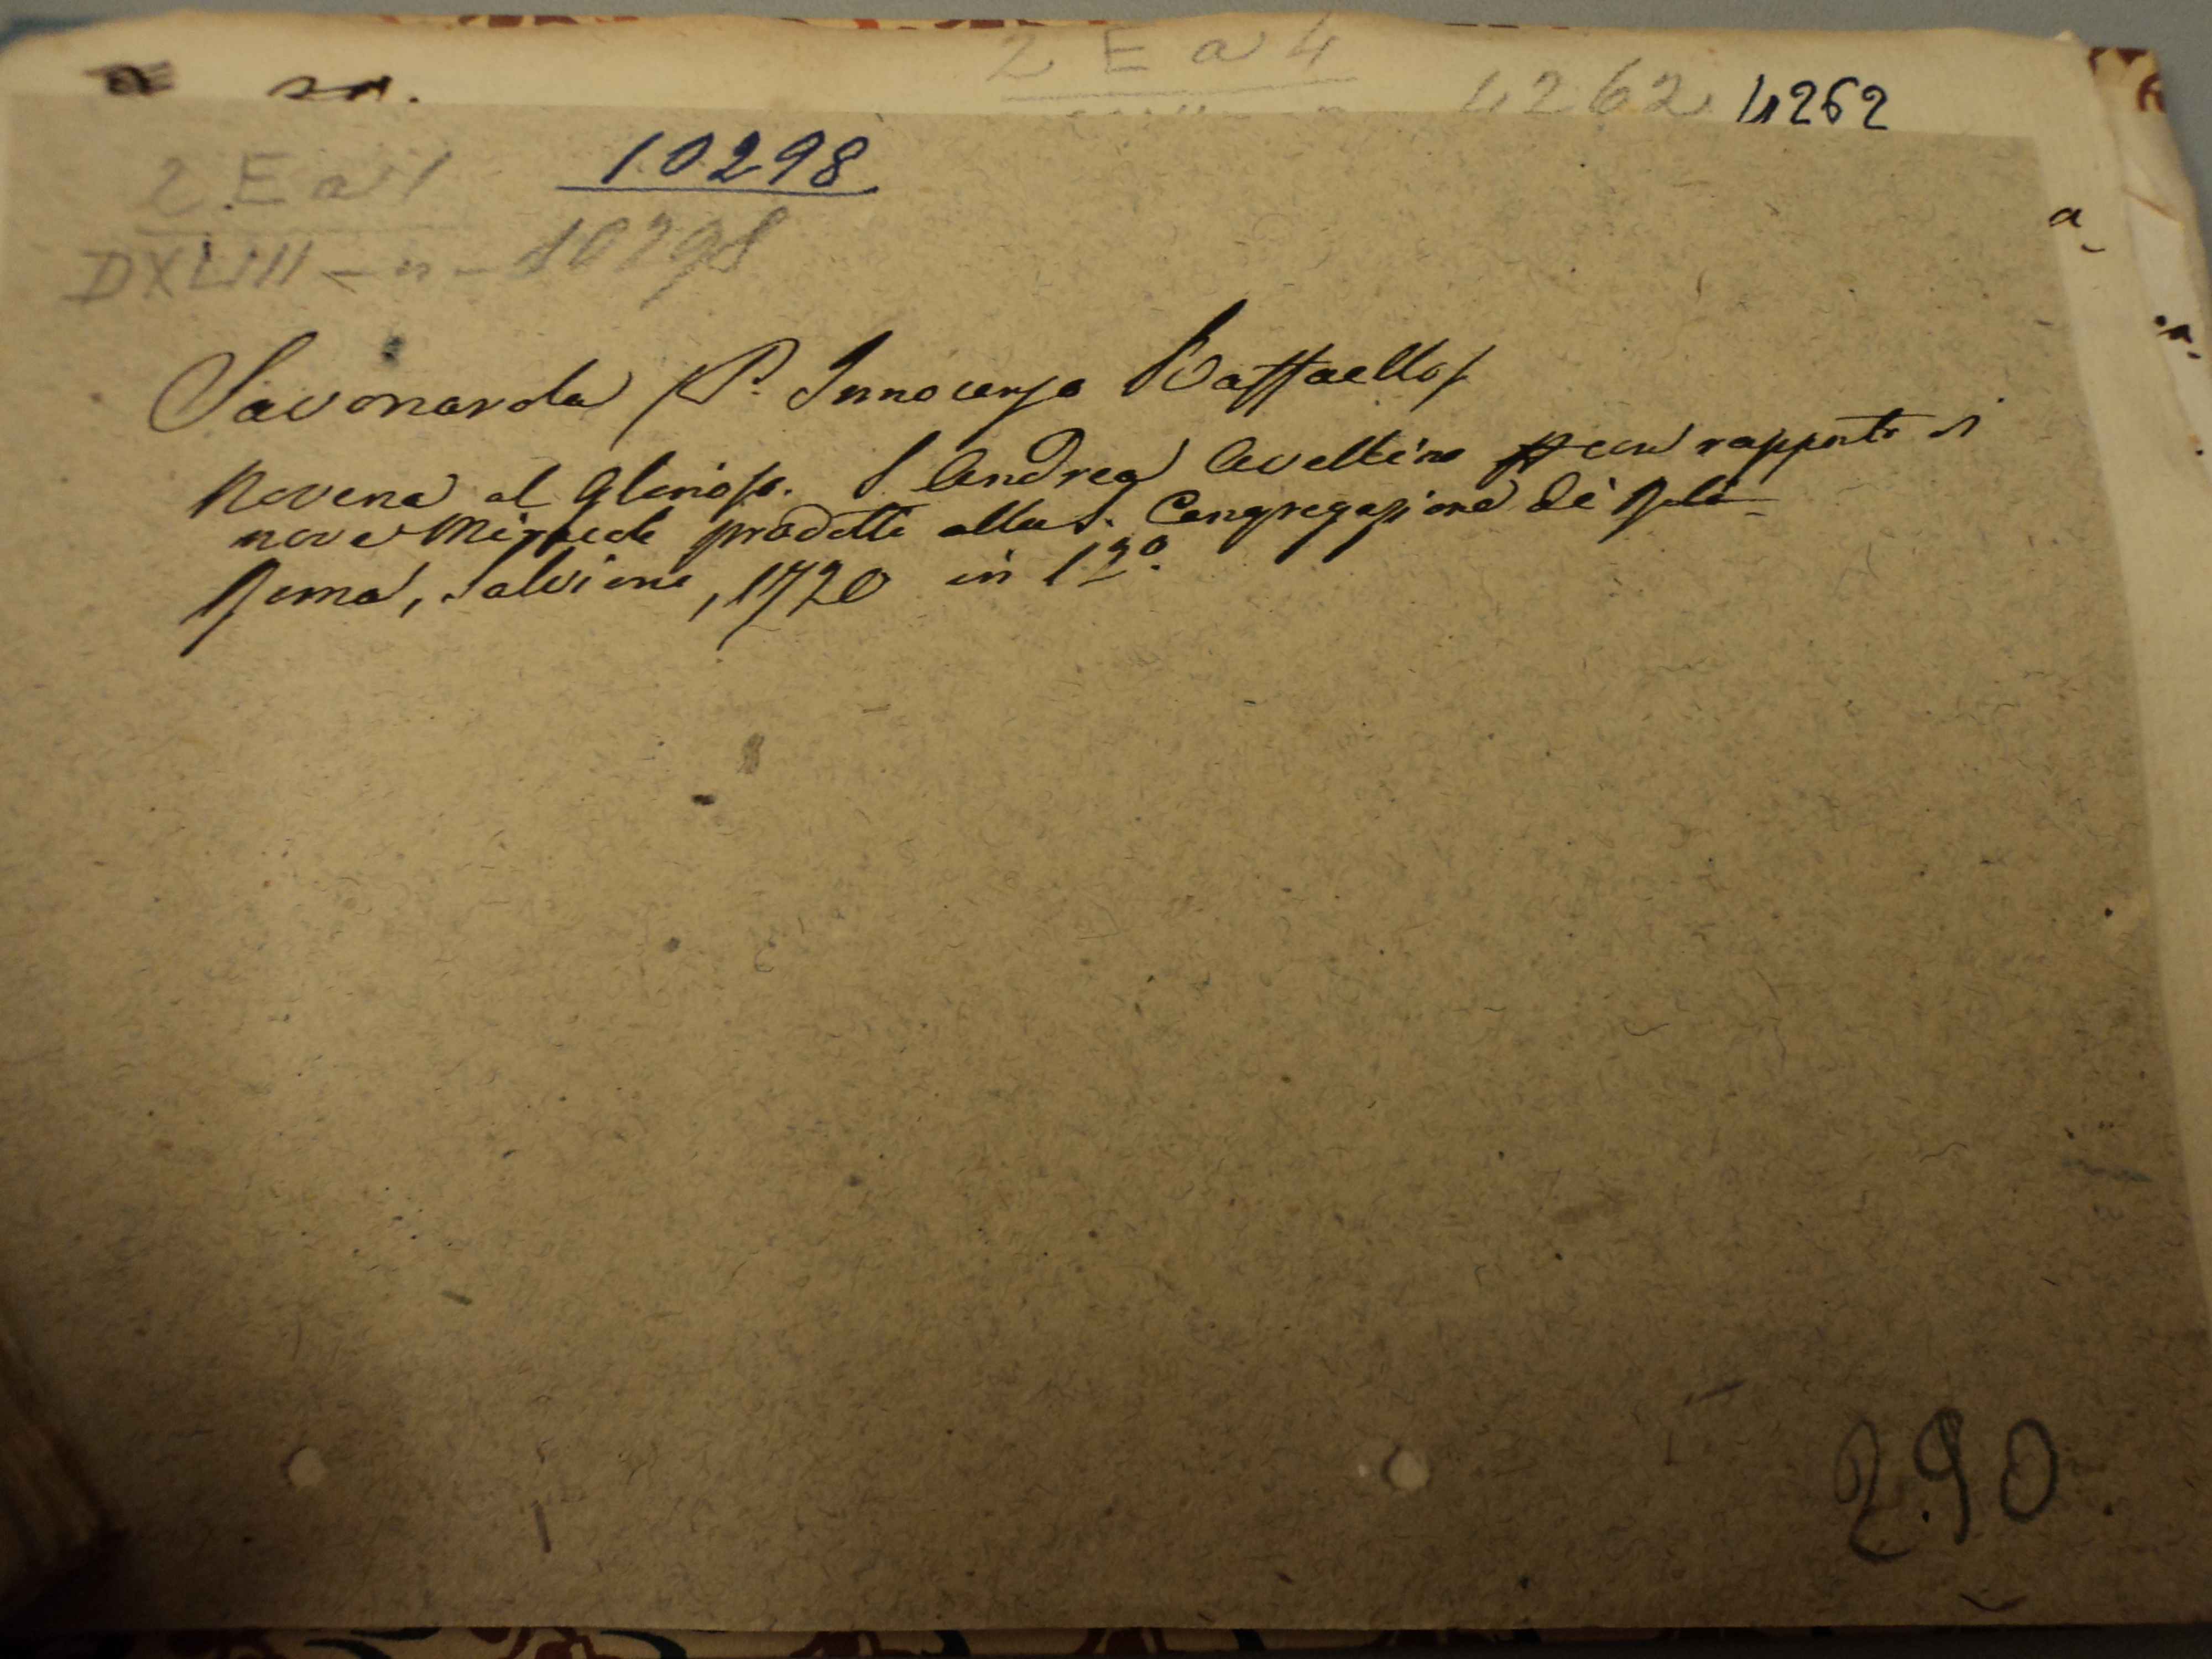 2 E a 4
4262 4262
10298
2. E a 4
DXLVIII - n - 10298
Savonarola (P. Innocenzo Raffaello)
Novena al glorioso. S Andrea Avellino con rapporto di
nove Miracoli prodotti alla S. Congregazione de' Riti
Roma, Salvioni, 1720 in 12º.
290